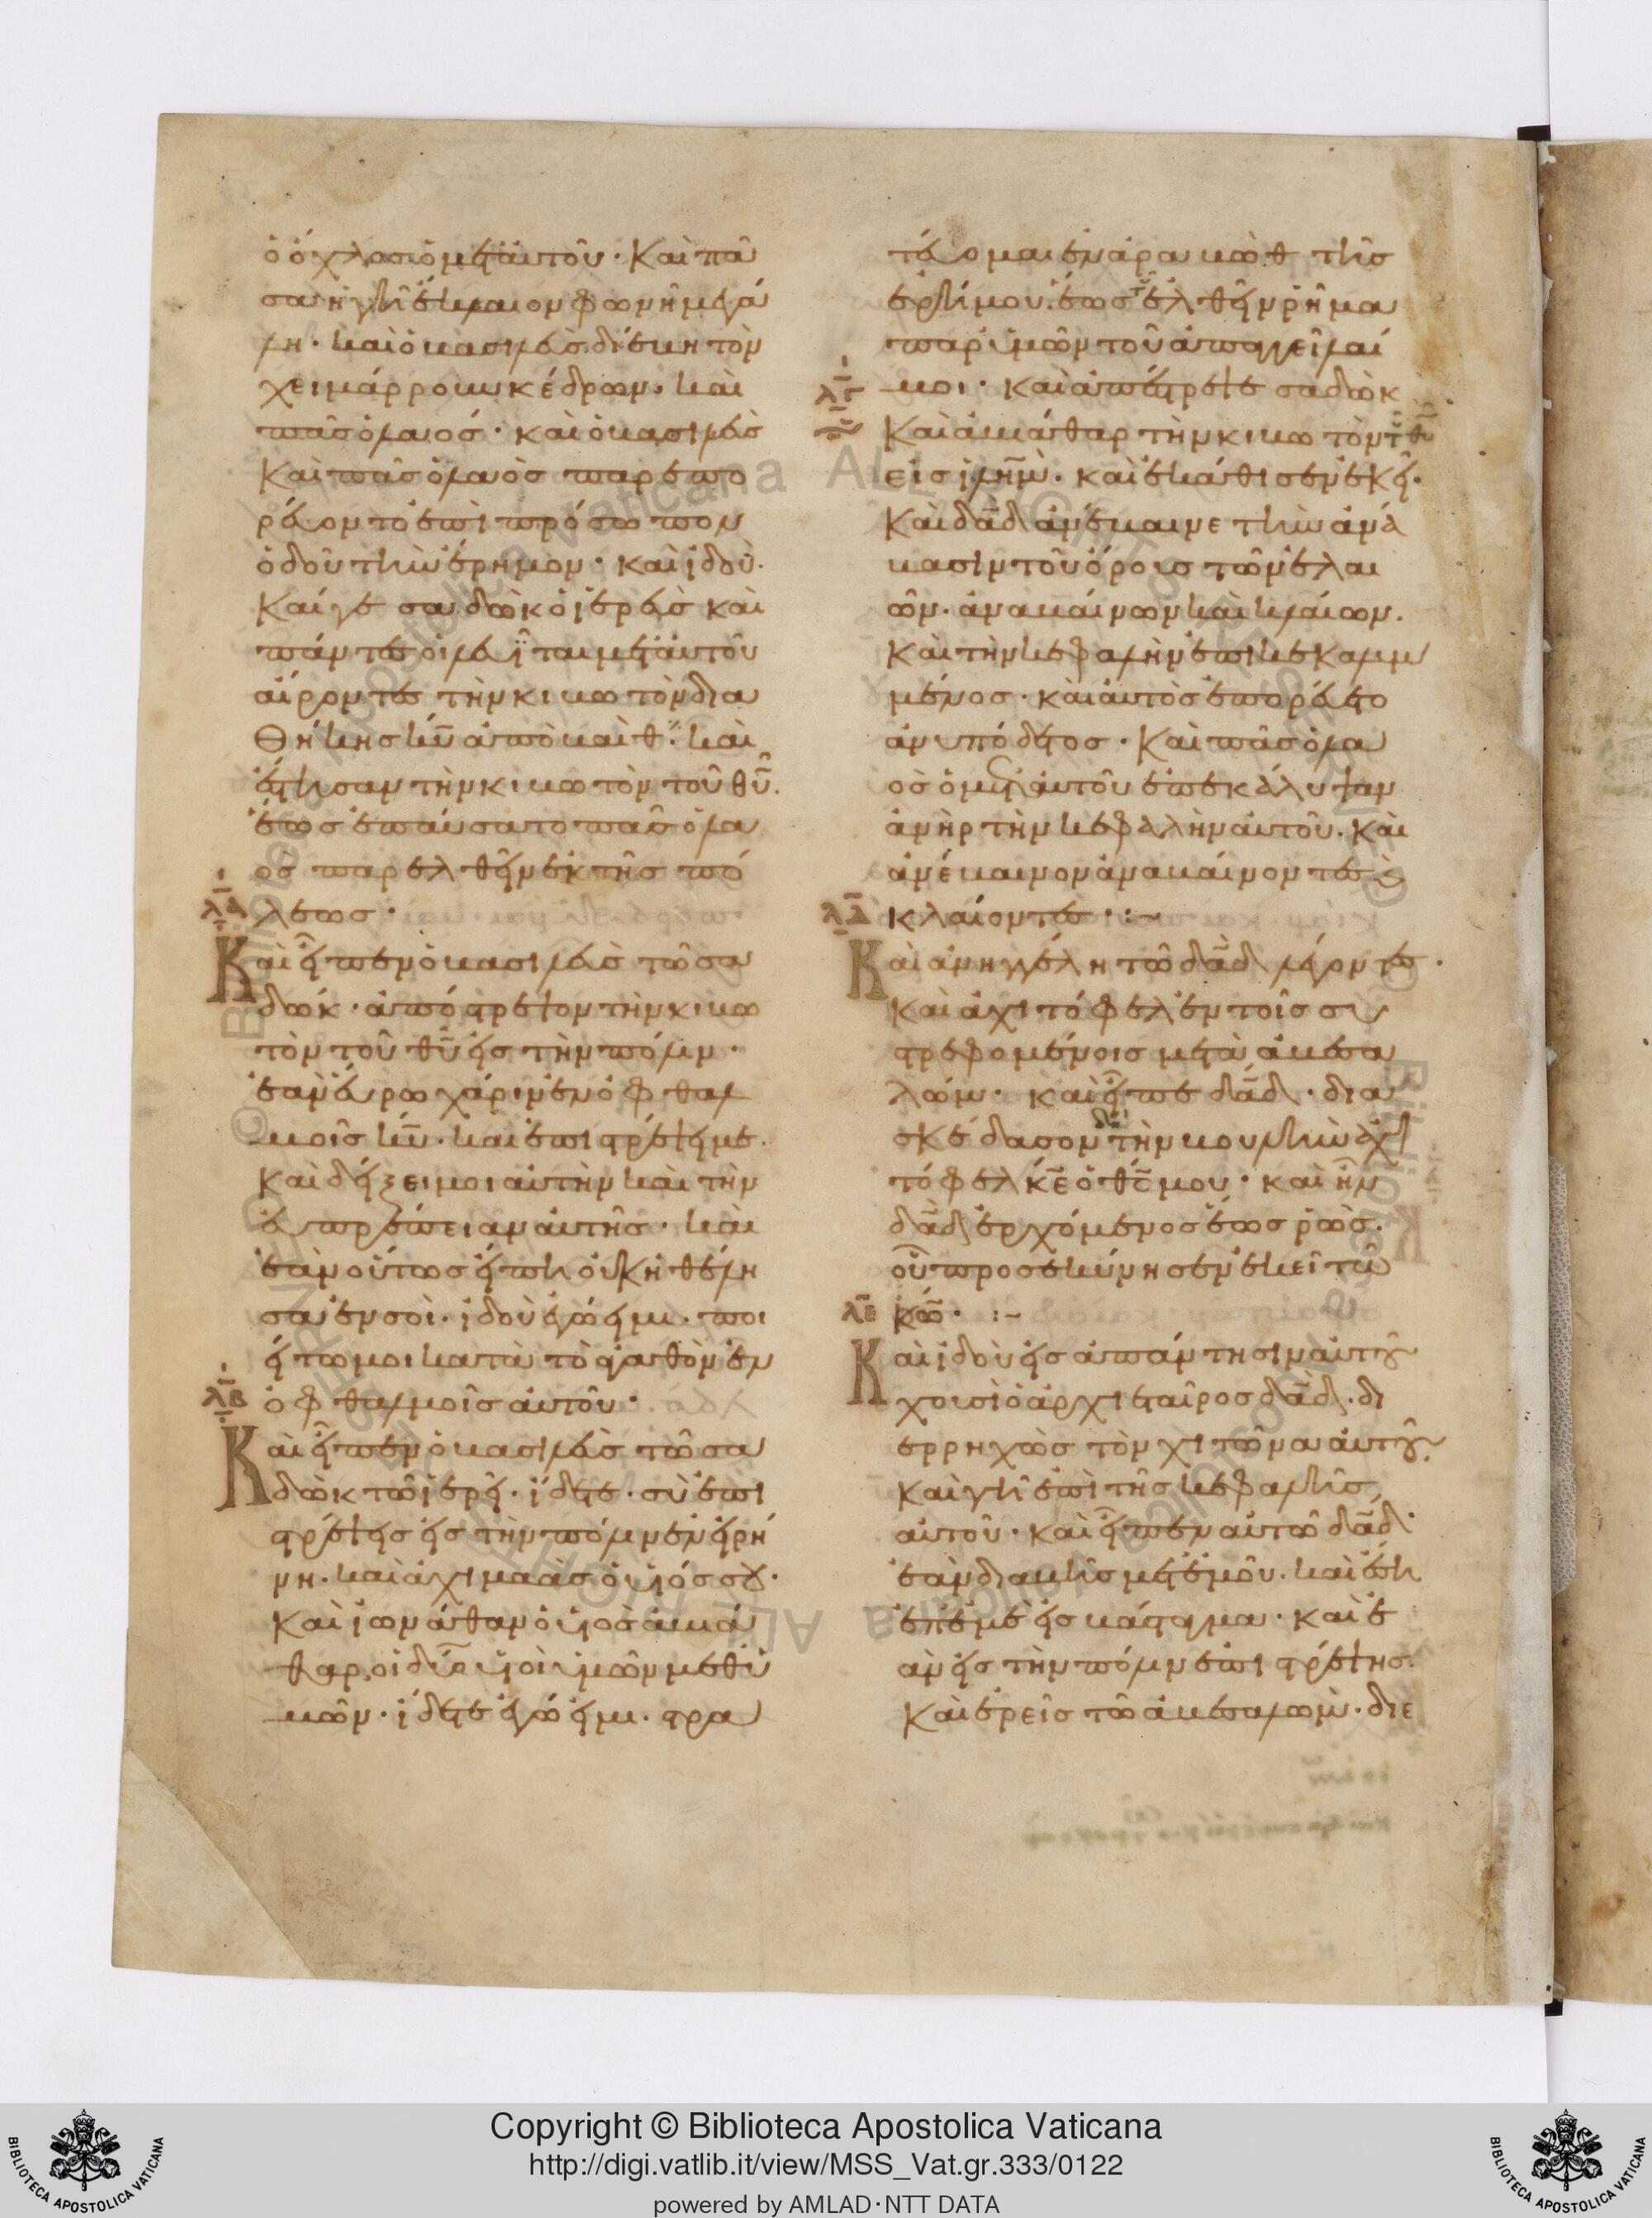 ὁ ὄχλος ὁ μετ' αὐτοῦ· Καὶ πᾶ
σα ἡ γῆ ἔκλαιον φωνῆ μεγά
λη· καὶ ὁ βασιλεὺς διέβη τὸν
χειμάρρουν κέδρων· καὶ
πᾶς ὁ λαος· καὶ ὁ βασιλεὺς
Καὶ πᾶς ὁ λαὸς παρεπο
ρεύοντο ἐπὶ πρόσωπον
ὁδοῦ τὴν ἔρημον· καὶ ἰδοὺ·
Καίγε σαδὼκ ὁ ἱερεὺς καὶ
πάντες οἱ λευῖται μετ' αὐτοῦ
αἴροντες τὴν κιβωτὸν δια
Θήκης κυ ἀπὸ βαὶθ· καὶ
ἔστησαν τὴν κιβωτὸν τοῦ θυ.
ἕως ἐπαύσατο πᾶς ὁ λα
ος παρελθεῖν ἐκ τῆς πό
λα λεως·
Καὶ εἶπεν ὁ βασιλεὺς τῶ σα
δώκ· ἀπόστρεψον τὴν κιβω
τὸν τοῦ θυ εἰς τὴν πόλιν·
ἐὰν εὕρω χάριν ἐν ὀφθαλ
μοῖς κυ· και ἐπιστρέψει με·
Καὶ δείξει μοι αὐτὴν καὶ τὴν
εὐπρέπειαν αὐτῆς· καὶ
ἐὰν οὕτως εἴπη οὐκ ἠθέλη
σα ἐν σοὶ· ἰδοὺ ἐγώ εἰμι· ποι
είτω μοι κατὰ τὸ ἀγαθὸν ἐν
λβ ὀφθαλμοῖς αὐτοῦ·
Καὶ εἶπεν ὁ βασιλεὺς τῶ σα
δὼκ τῶ ἱερεῖ· ἴδετε· σὺ ἐπι
στρέψεις εἰς τὴν πόλιν ἐν εἰρή
νη· καὶ ἀχιμαὰς ὁ υἱός σου·
Καὶ ἰωνάθαν ὁ υἱος ἀβιά
θαρ, οἱ δύο υἱοὶ ὑμῶν μεθ' ὑ
μῶν· ἴδετε ἐγώ εἰμι· στρα
τεύομαι ἐν ἀραβὼθ τῆς
ἐρήμου· ἕως τοῦ ἐλθεῖν ῥῆμα
παρ' ὑμῶν τοῦ ἀπαγγεῖλαί
λγ μοι· καὶ ἀπέστρεψε σαδὼκ
Καὶ ἀβιάθαρ τὴν κιβωτὸν τοῦ θυ
εἰς ιλημ· καὶ ἐκάθισεν ἐκεῖ·
Καὶ δαδ ἀνέβαινε τὴν ἀνά
βασιν τοῦ ὄρους τῶν ἐλαι
ῶν· ἀναβαίνων καὶ κλαίων·
Καὶ τὴν κεφαλὴν ἐπικεκαλυμ
μένος· καὶ αὐτὸς ἐπορεύετο
ἀνυπόδετος· Καὶ πᾶς ὁ λα
ὸς ὁ μετ' αὐτοῦ ἐπεκάλυψαν
ἀνὴρ τὴν κεφαλὴν αὐτοῦ· Καὶ
ἀνέβαινον ἀναβαίνοντες καὶ
λδ κλαίοντες· :~
Καὶ ἀνηγγέλη τῶ δαδ λέγοντες·
Καὶ ἀχιτόφελ ἐν τοῖς συ
στρεφομένοις μετὰ ἀβεσα
λώμ· καὶ εἶπε δαδ· δια
σκέδασον δὴ τὴν βουλὴν ἀχι
τόφελ κε ὁ θς μου· καὶ ἦν
δαδ ἐρχόμενος ἕως ῥὼς·
οὗ προσεκύνησεν ἐκεῖ τῶ
λε κω· :~
Καὶ ἰδοὺ εἰς ἀπάντησιν αὐτοῦ
χουσὶ ὁ ἀρχιεταῖρος δαδ· δι
ερρηχὼς τὸν χιτῶνα αὐτοῦ
καὶ γῆ ἐπὶ τῆς κεφαλῆς
αὐτοῦ· καὶ εἶπεν αὐτῶ δαδ·
ἐὰν διαβῆς μετ' ἐμοῦ· καὶ ἔση
ἐπ' ἐμὲ εἰς βάσταγμα· καὶ ἐ
ὰν εἰς τὴν πόλιν ἐπιστρέψης·
Καὶ ἐρεῖς τῶ ἀβεσαλωμ· διε
Copyright © Biblioteca Apostolica Vaticana
http://digi.vatlib.it/view/MSS_Vat.gr.333/0122
powered by AMLAD·NTT DATA
BIBLIOTECA APOSTOLICA VATICANA
BIBLIOTECA APOSTOLICA VATICANA